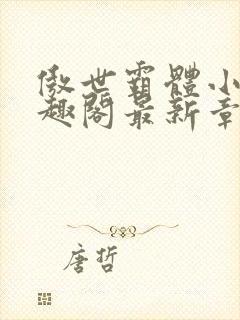 傲世霸體小
趣閣最新章
唐哲